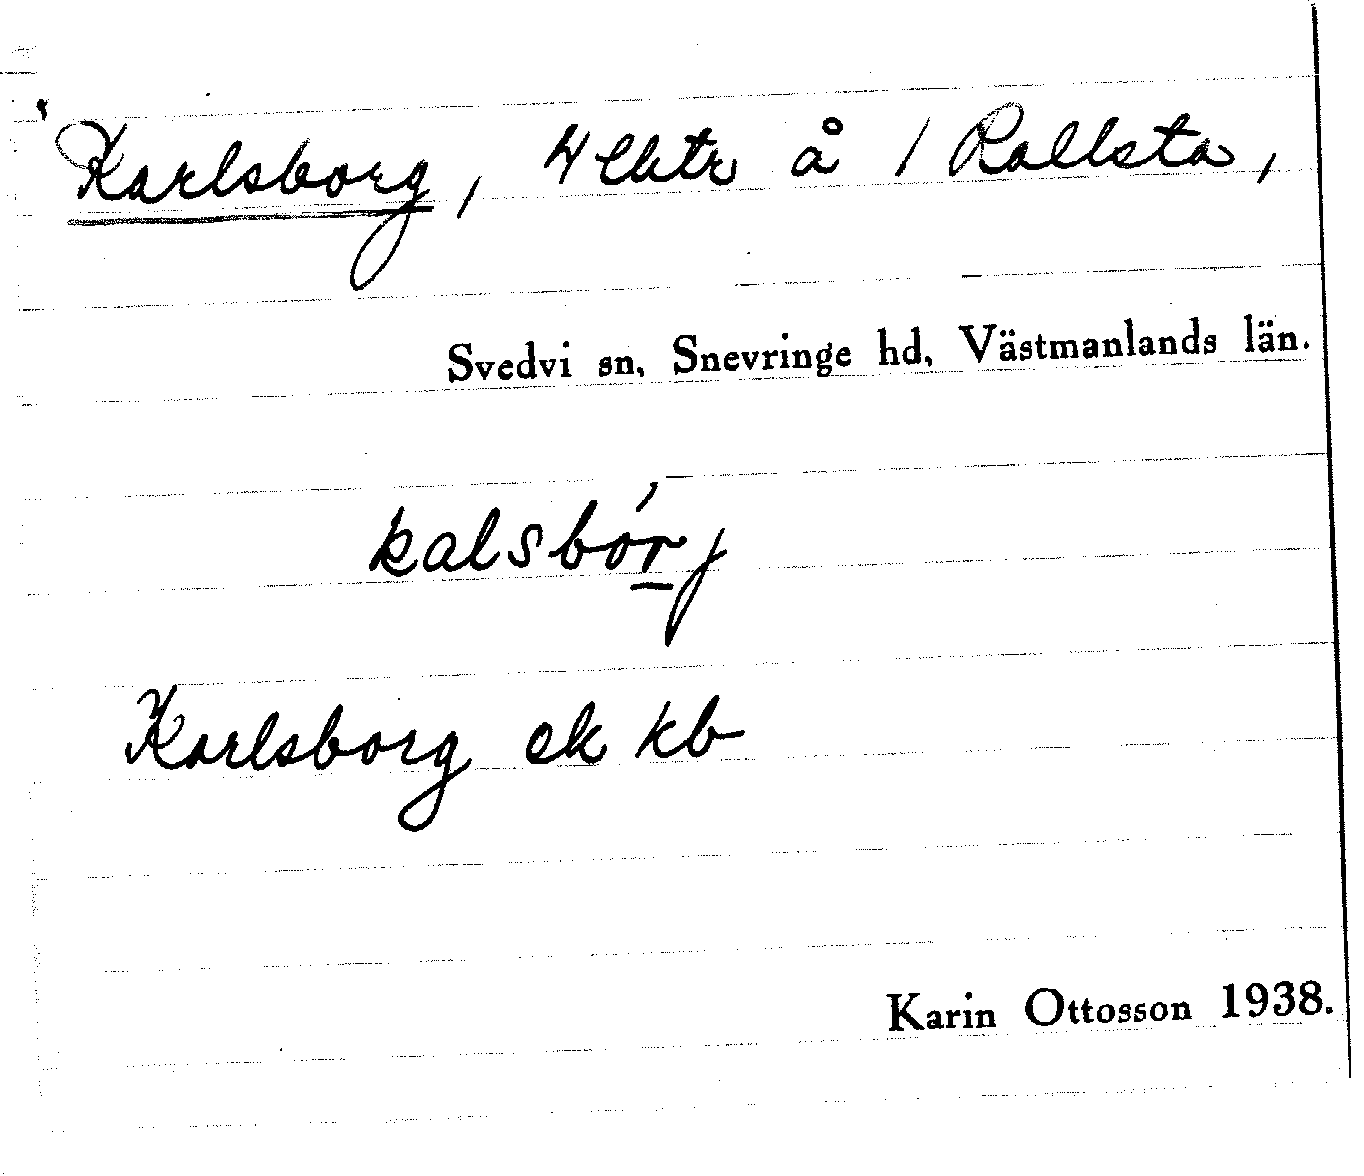 Karlsborg, 4 lhtr å 1 Rallsta,
Svedvi sn, Snevringe hd, Västmanlands län.
kalsbórj
Karlsborg ek kb
Karin Ottosson 1938.